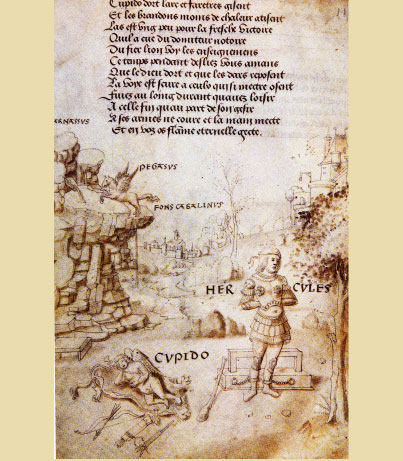 Cupido dort larc et faretres gisent
Et les brandons moins de chaleur atisent
Las est ung peu pour la fresche victoire
Quil a eue du domitteur notoire
Du fier lion voy les enseignemens
Ce temps pendant desliez vous amans
Que le dieu dort et que les dars reposent
La voye est seure a ceulx qui si mectre osent
Fuiez au loing durant quauez loisir
A celle fin quau part de son gesir
A ses armes ne coure et la main mecte
Et en voz os flame eternelle gecte.
PEGASUS
FONS CABALINUS
HER CULES
CVPIDO